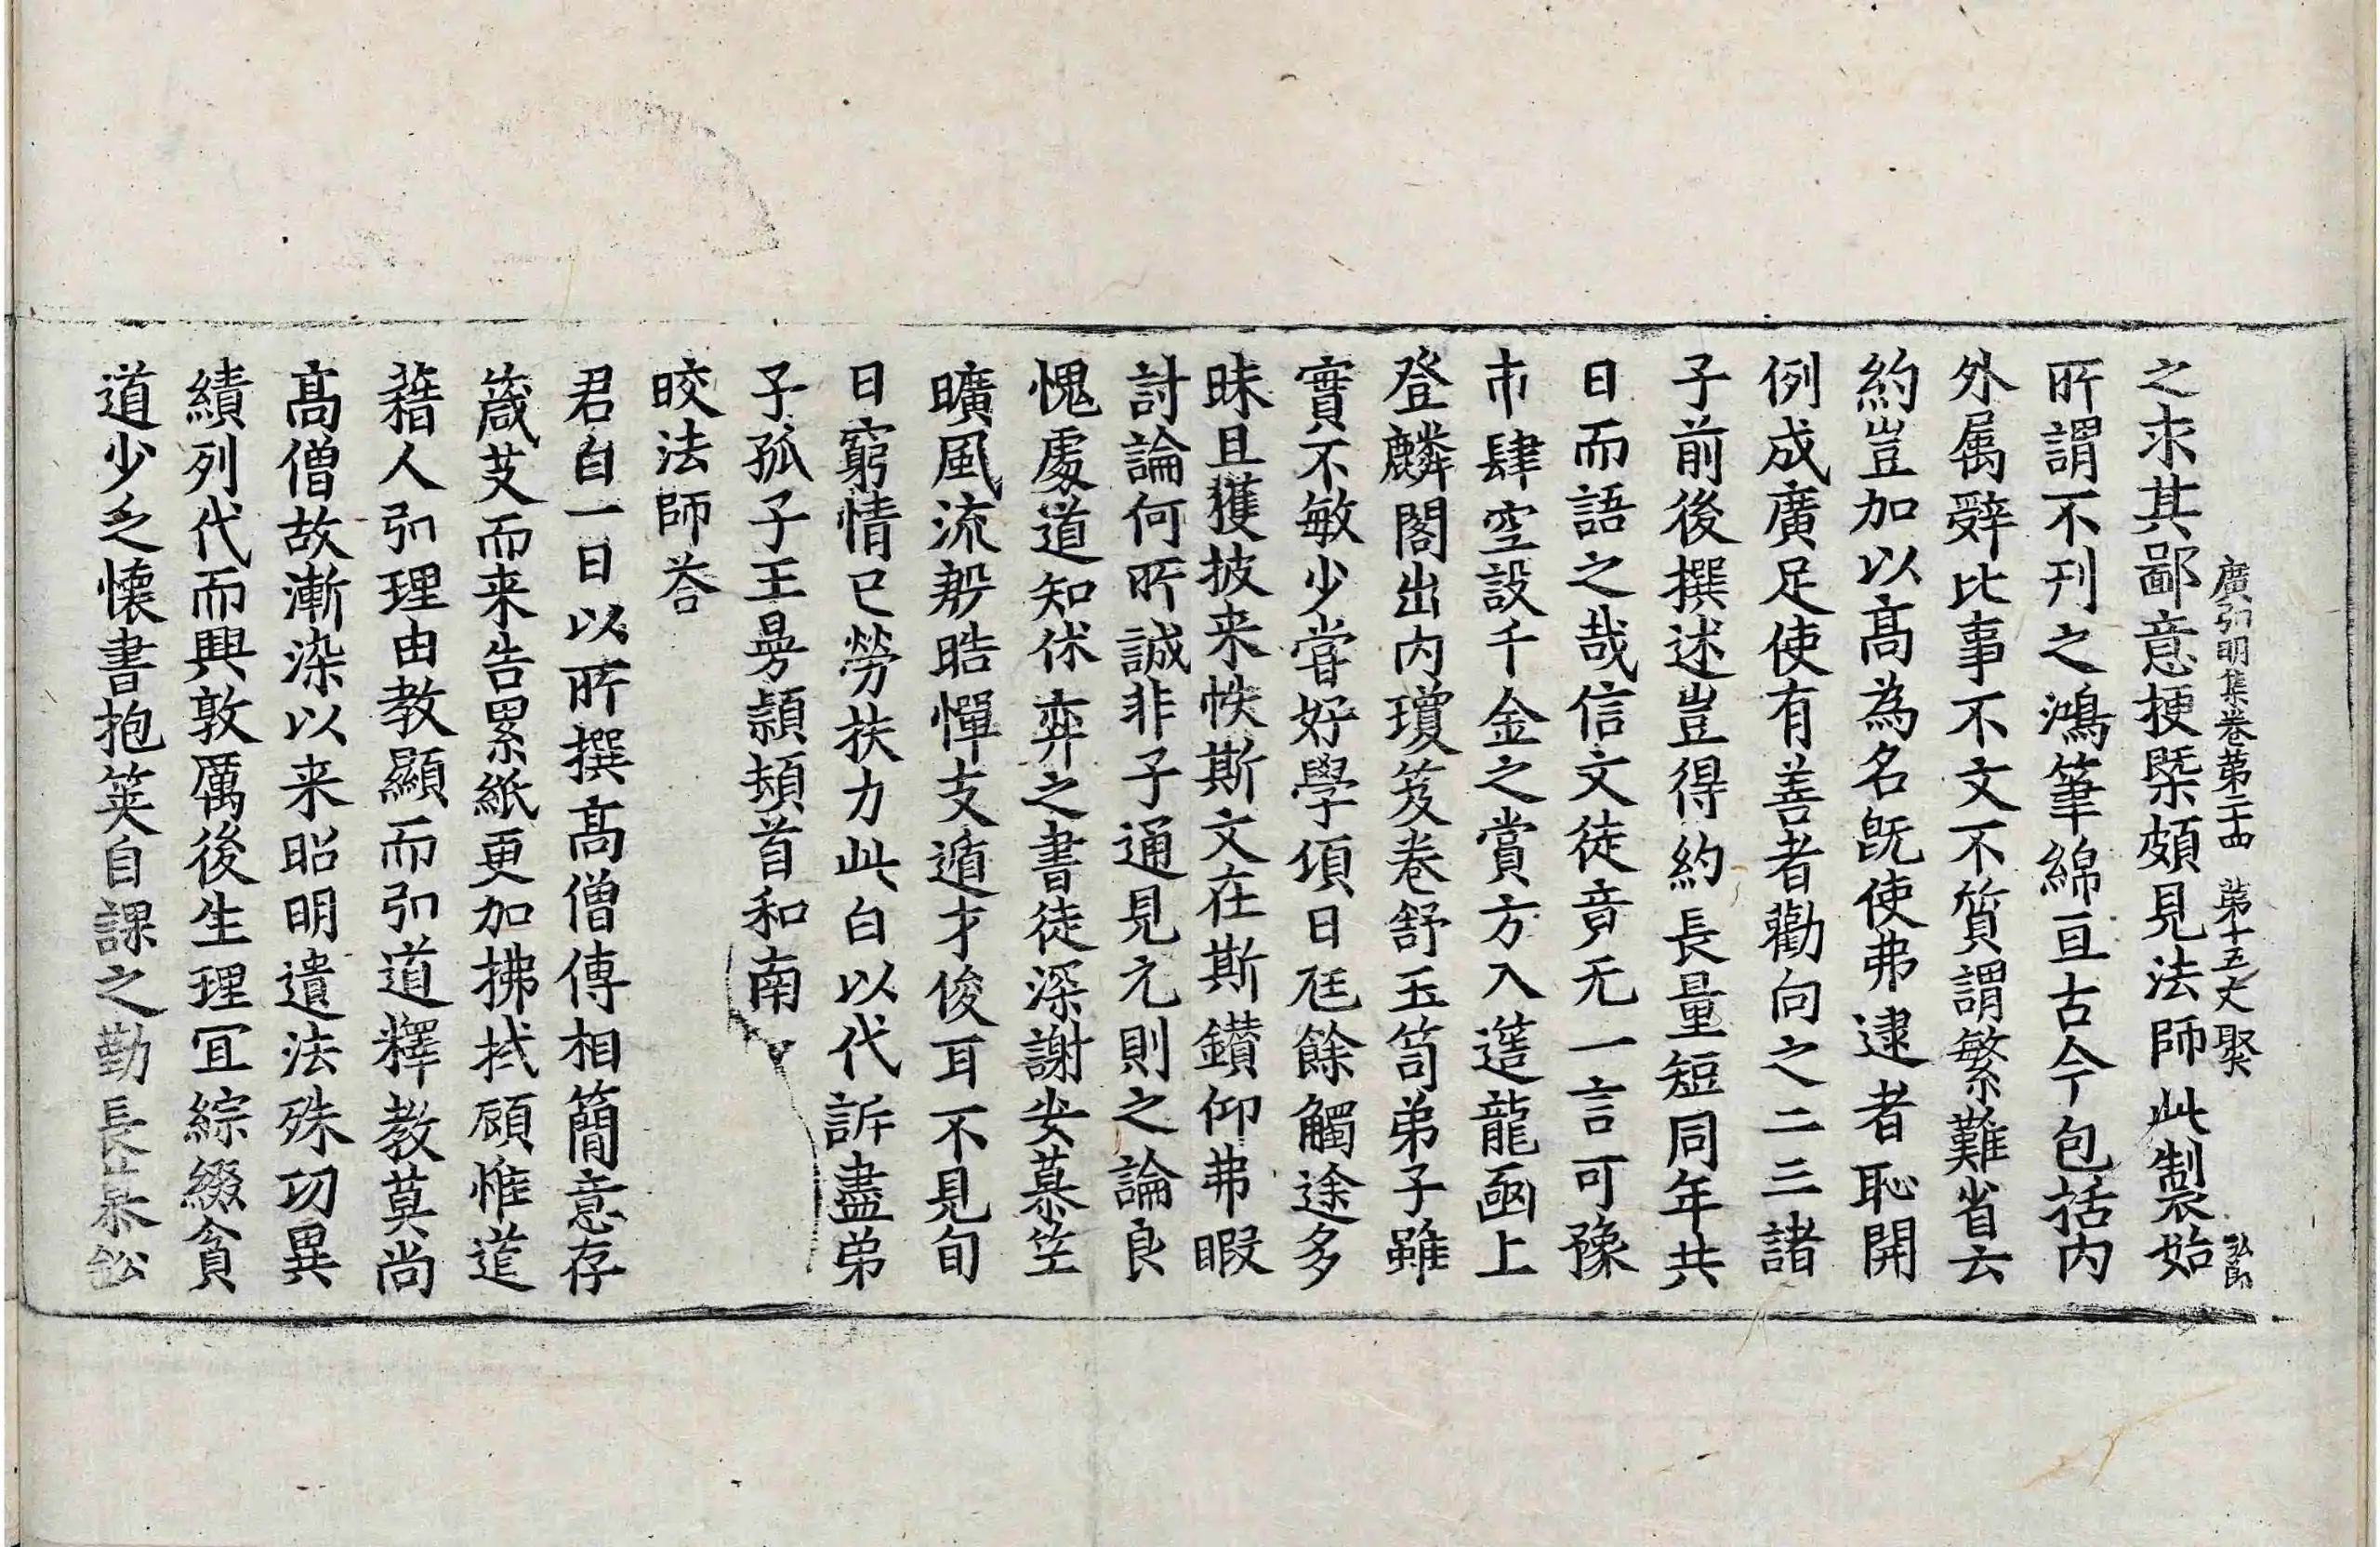 廣弘明集卷第二十四 第十五丈 聚
之求其鄙意梗槩頗見法師此製始
所謂不刊之鴻筆綿亘古今包括内
外属辭比事不文不質謂繁難省云
約豈加以髙為名旣使弗逮者恥開
例成廣足使有善者勸向之二三諸
子前後撰述豈得約長量短同年共
日而語之哉信文徒竟无一言可豫
市肆空設千金之賞方入簉龍函上
登麟閣出内瓊笈卷舒玉笥弟子雖
實不敏少甞好學頃日尫餘觸途多
昧且獲披来帙斯文在斯鑚仰弗暇
討論何所誠非子通見元則之論良
愧處道知休弈之書徒深謝安慕笠
曠風流殷晧憚支遁才俊耳不見旬
日窮情已勞扶力此白以代訴盡弟
子孤子王曼頴頓首和南
皎法師荅
君白一日以所撰髙僧傳相簡意存
箴艾而来告累紙更加拂拭顧惟道
藉人弘理由教顯而弘道釋教莫尚
髙僧故漸染以来昭明遺法殊功異
績列代而興敦厲後生理冝綜綴貪
道少乏懷書抱筴自課之勤長